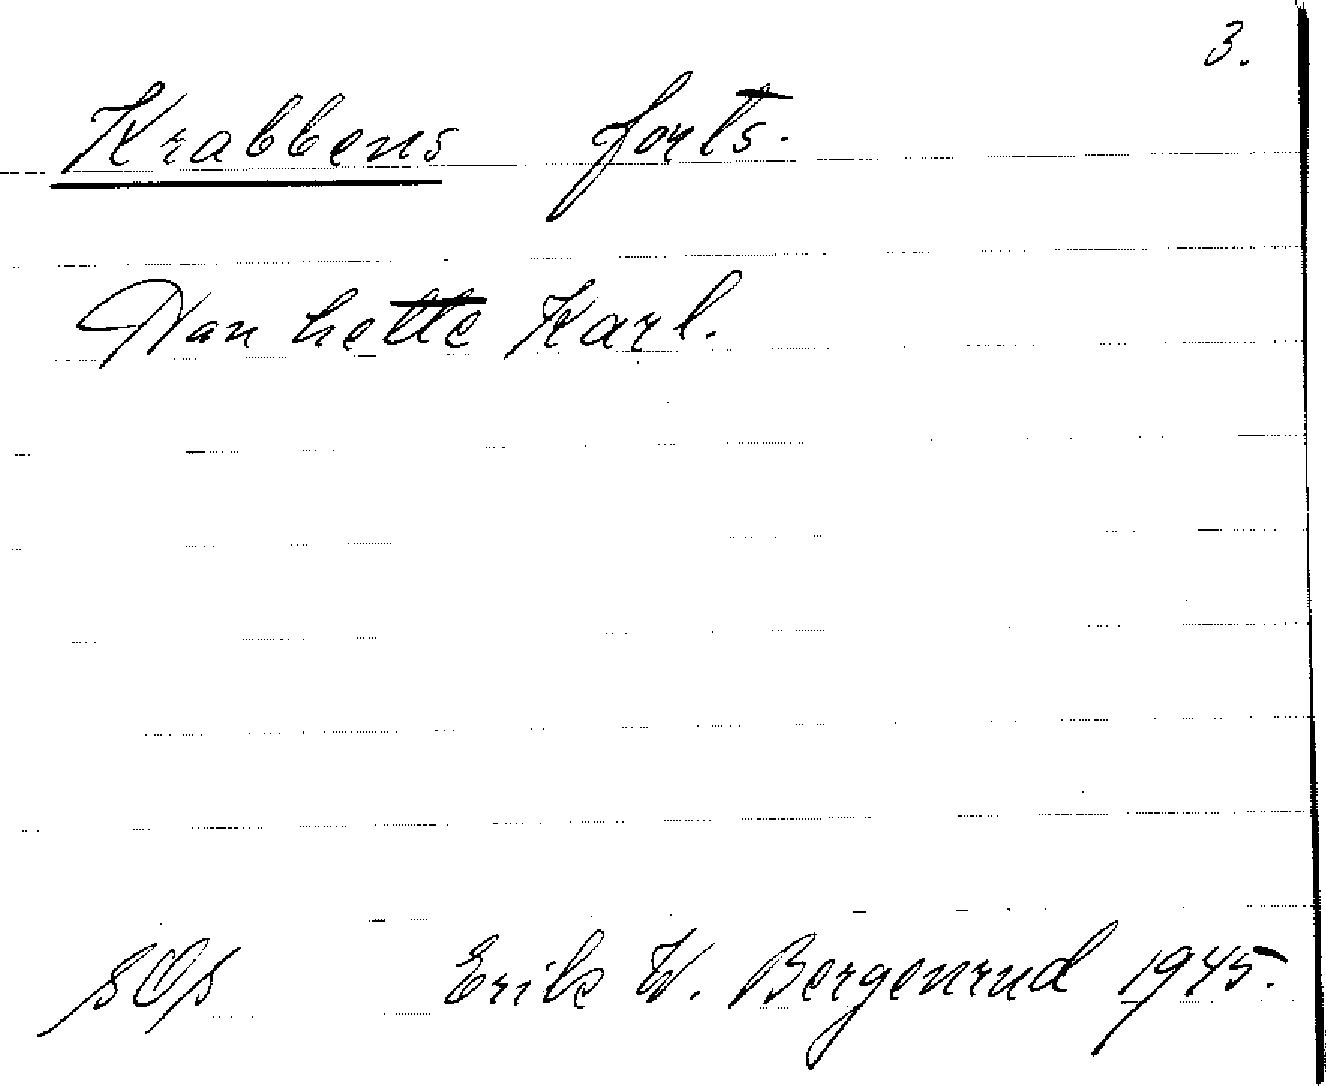 3.
Krabbens forts.
Han hette Karl.
Erik W. Bergenrud 1945.